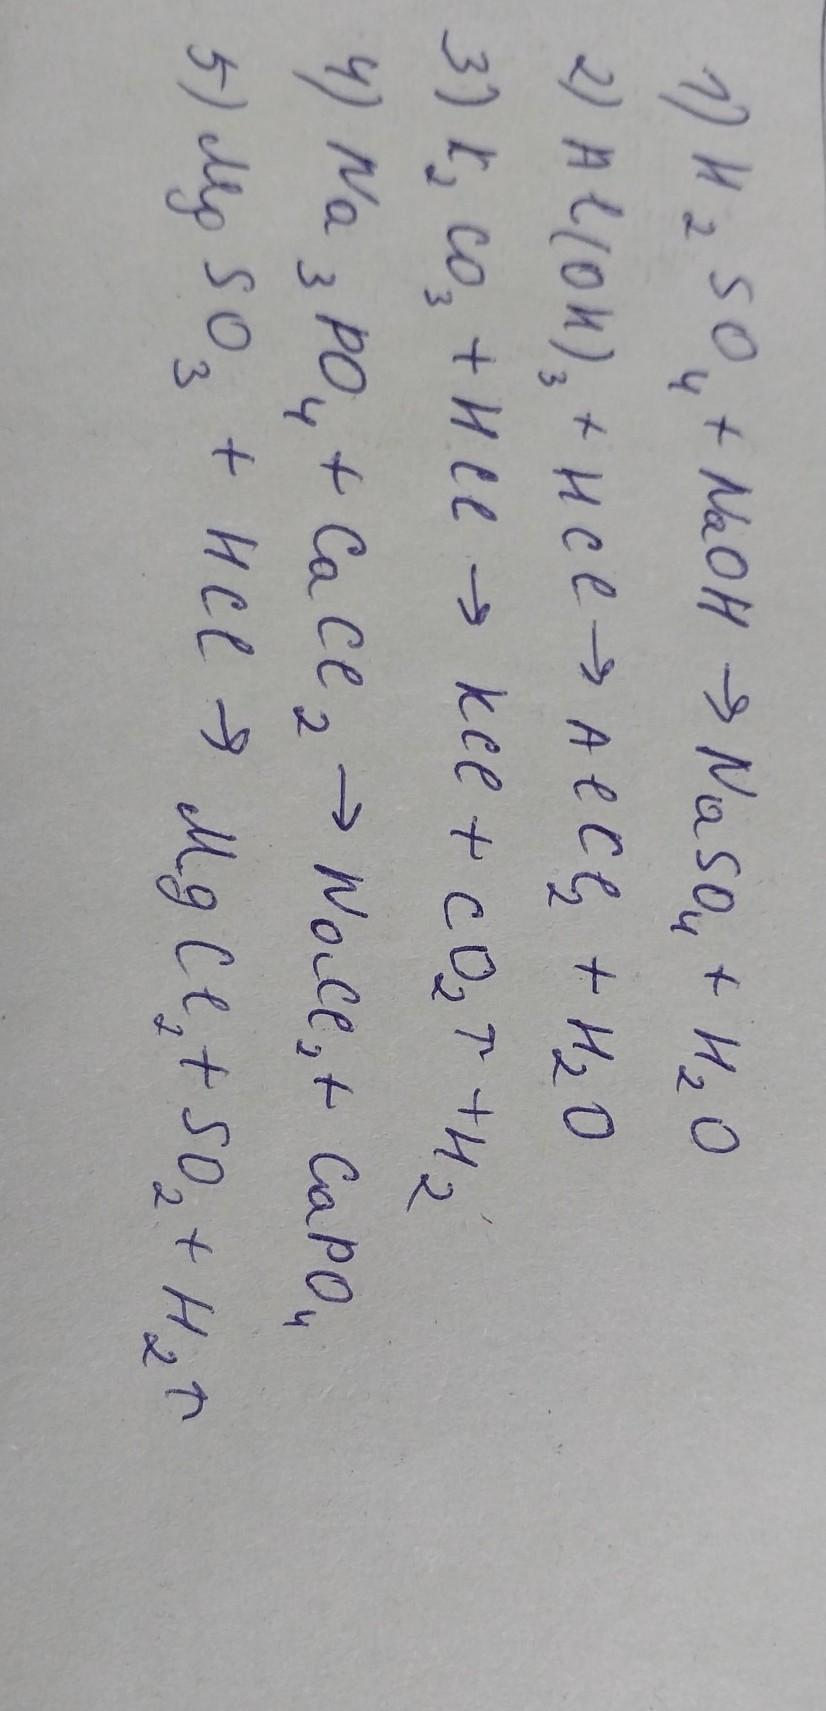 1) H₂SO₄ + NaOH → NaSO₄ + H₂O
2) Al(OH)₃ + HCl → AlCl₂ + H₂O
3) K₂CO₃ + HCl → KCl + CO₂↑ + H₂
4) Na₃PO₄ + CaCl₂ → NaCl₂ + CaPO₄
5) MgSO₃ + HCl → MgCl₂ + SO₂ + H₂↑